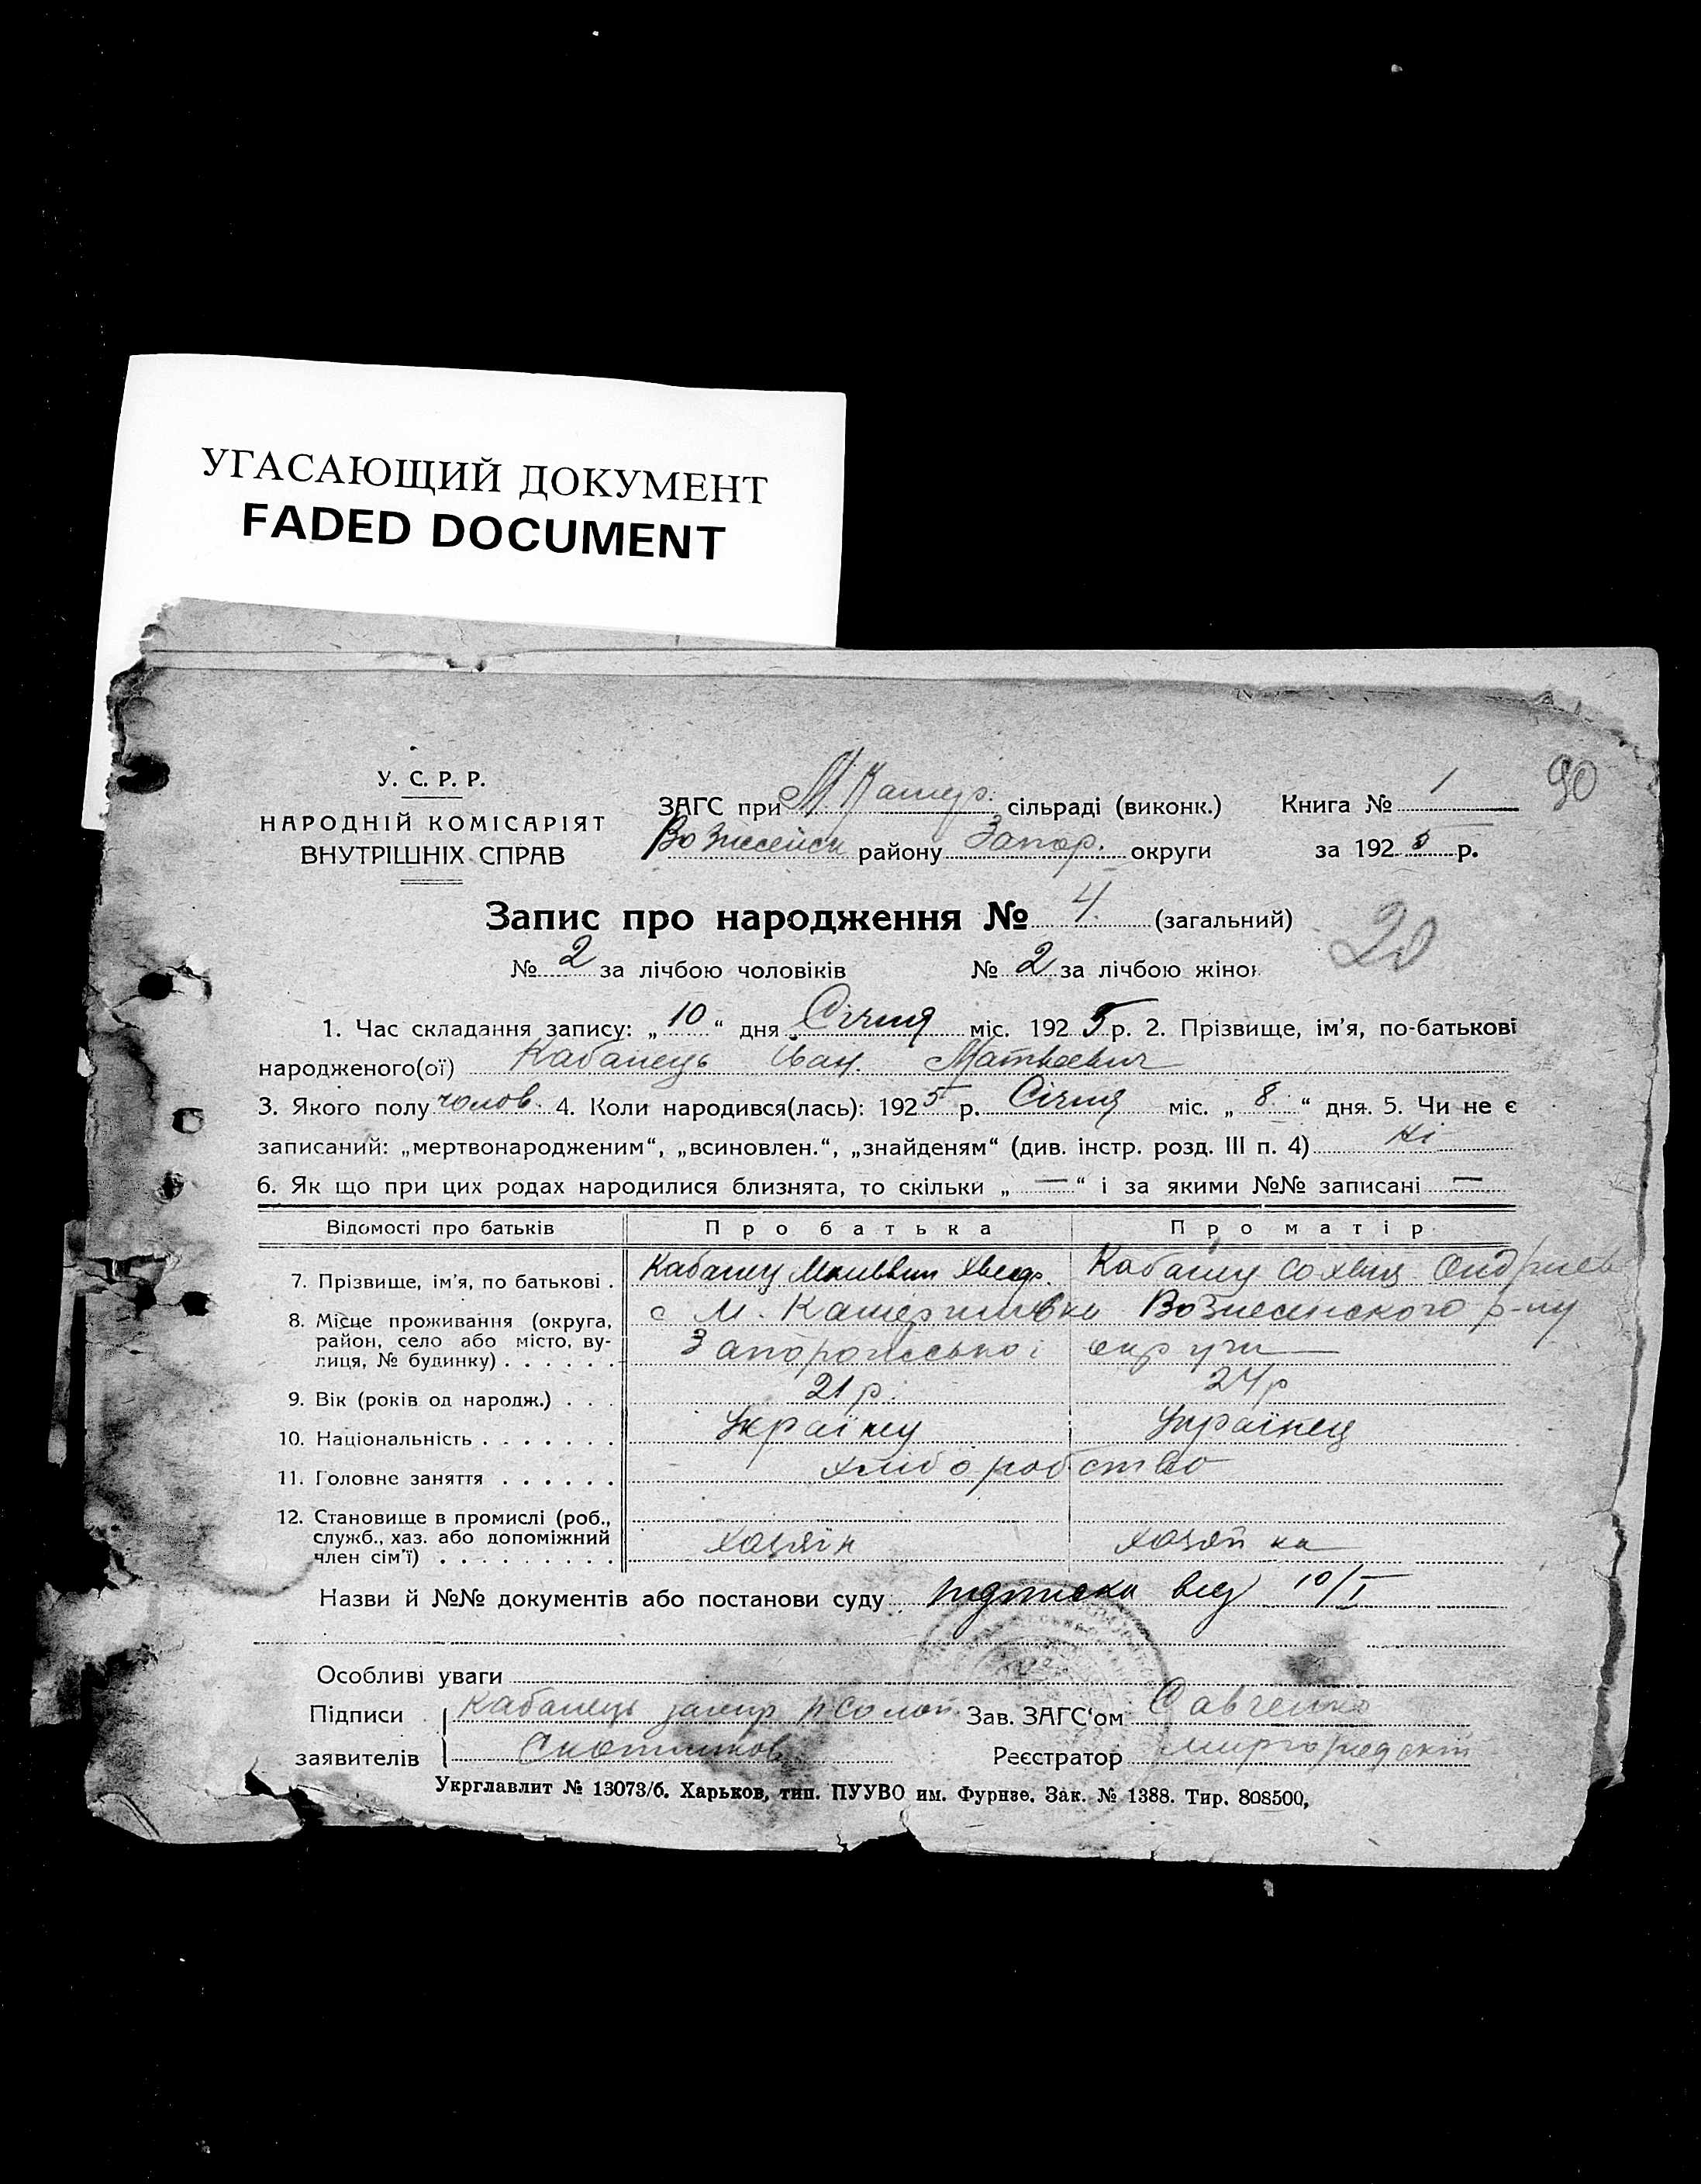 УГАСАЮЩИЙ ДОКУМЕНТ
FADED DOCUMENT
90
У. С. Р. Р.
НАРОДНІЙ КОМІСАРІЯТ
ВНУТРІШНІХ СПРАВ
ЗАГС при М. Катер. сільраді (виконк.) Книга № 1
Вознесенск району Запор. округи за 1925 р.
Запис про народження № 4 (загальний)
20
№ 2 за лічбою чоловіків № 2 за лічбою жінок
1. Час складання запису: „ 10 “ дня Січня міс. 1925 р. 2. Прізвище, ім’я, по-батькові
народженого(ої) Кабанець Іван Матвеевич
3. Якого полу чолов. 4. Коли народився(лась): 1925 р. Січня міс. „ 8 “ дня. 5. Чи не є
записаний: „мертвонародженим“, „всиновлен.“, „знайденям“ (див. інстр. розд. III п. 4) Ні
6. Як що при цих родах народилися близнята, то скільки „ — “ і за якими №№ записані —
Відомості про батьків Про батька Про матір
7. Прізвище, ім’я, по батькові . Кабанец Матвѣй Хвед. Кабанец Сохвия Андриев
8. Місце проживання (округа, район, село або місто, вулиця, № будинку) . . . . . . с М. Катериновки Вознесенского р-ну
Запорожської округи —
9. Вік (років од народж.) . . . 21 р. 24 р
10. Національність . . . . . . . Українец Українец
11. Головне заняття . . . . . . хліборобство
12. Становище в промислі (роб., служб., хаз. або допоміжний член сім’ї) . . . . . . . . . хазяїн хазяйка
Назви й №№ документів або постанови суду підписка від 10/I
Особливі уваги
Підписи Кабанець Зав. ЗАГС‘ом Савченко
заявителів Реєстратор Миргородский
Укрглавлит № 13073/б. Харьков, тип. ПУУВО им. Фрунзе. Зак. № 1388. Тир. 808500,